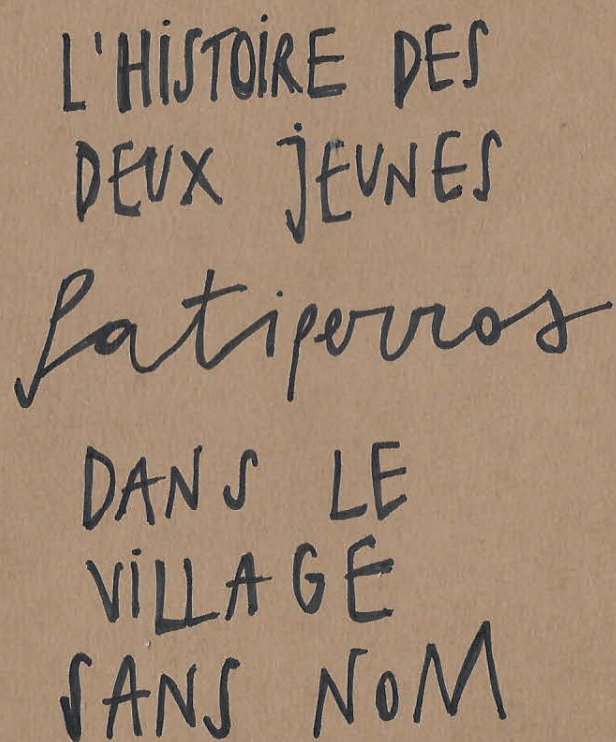 L'HISTOIRE DES
DEUX JEUNES
Patiperros
DANS LE
VILLAGE
SANS NOM